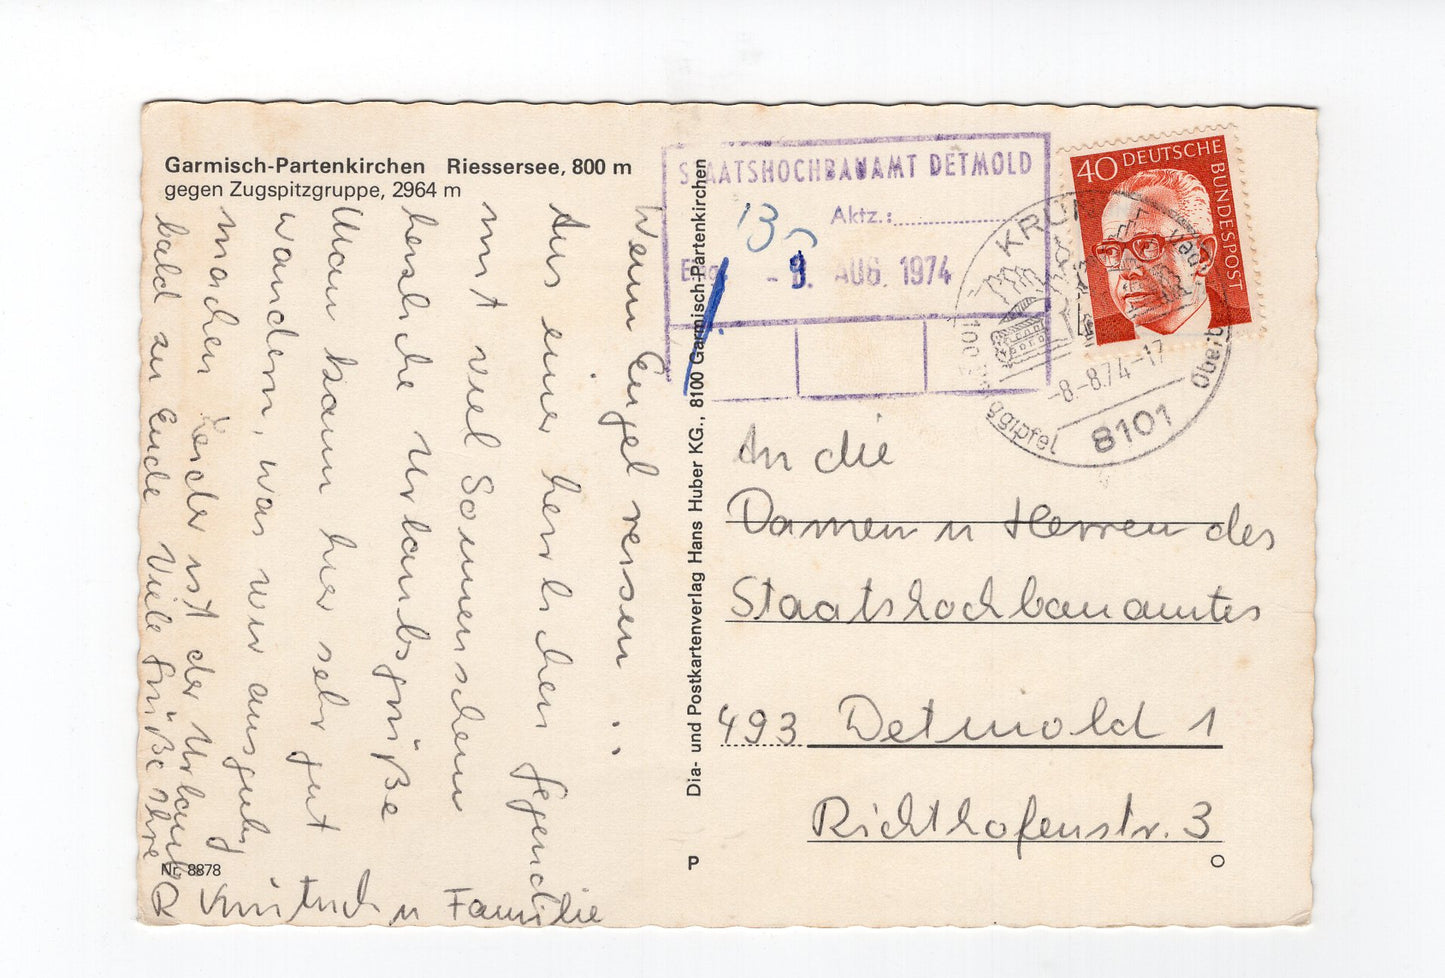 Garmisch-Partenkirchen Riessersee, 800 m
gegen Zugspitzgruppe, 2964 m
Wenn Engel reisen ..
Aus einer herrlichen Gegend
mit viel Sonnenschein
herzliche Urlaubsgrüße
Man kann hier sehr gut
wandern, was wir ausgiebig
machen Leider ist der Urlaub
bald zu Ende Viele Grüße Ihre
u Familie
Nr. 8878
Dia- und Postkartenverlag Hans Huber KG., 8100 Garmisch-Partenkirchen
P
STAATSHOCHBAUAMT DETMOLD
Aktz.:
Eing. - 9. AUG. 1974
40 DEUTSCHE BUNDESPOST
KRÜN
-8.-8.74-17
8101
An die
Damen u Herren des
Staatshochbauamtes
493 Detmold 1
Richthofenstr. 3